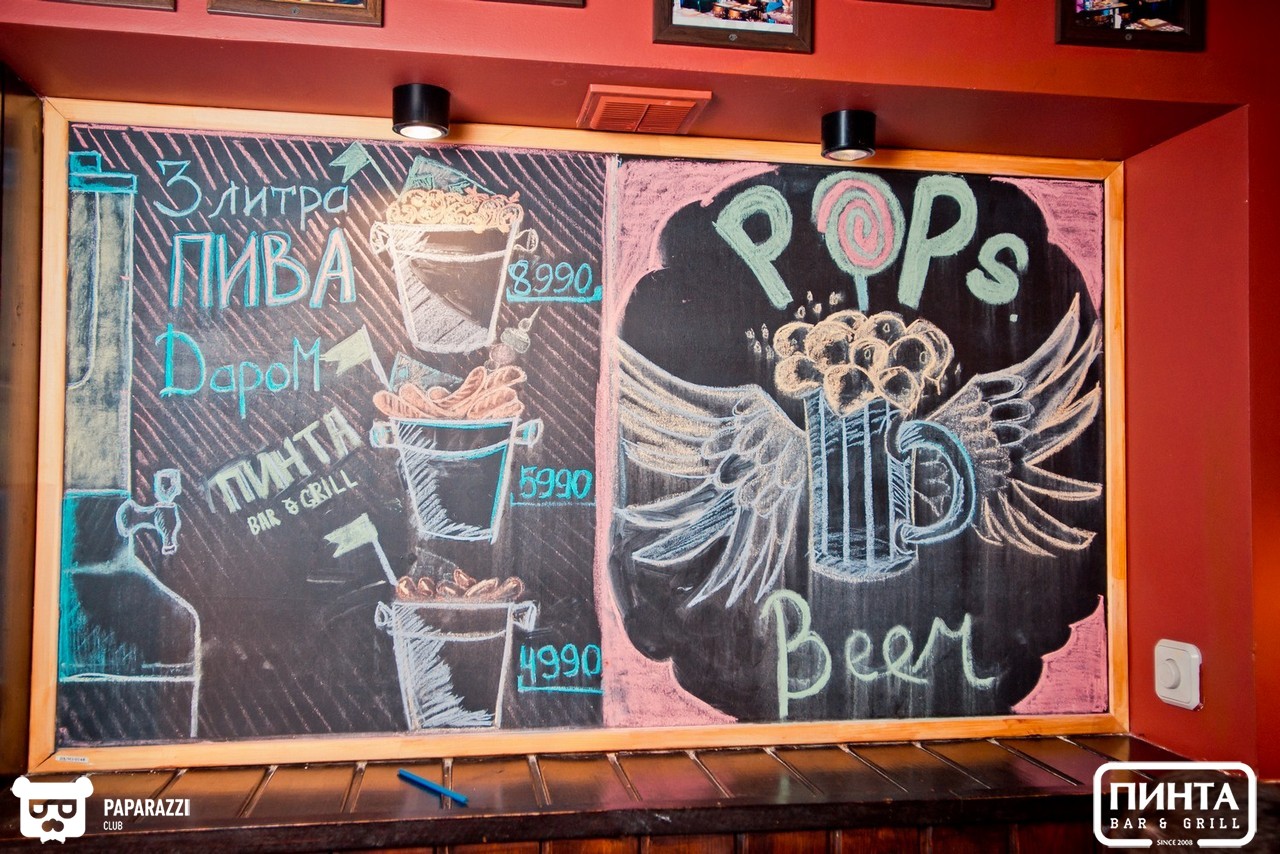 3 литра
ПИВА
Даром
ПИНТА
BAR & GRILL
8.990
5990
4990
POPs.
Beer
PAPARAZZI
CLUB
ПИНТА
BAR & GRILL
SINCE 2008